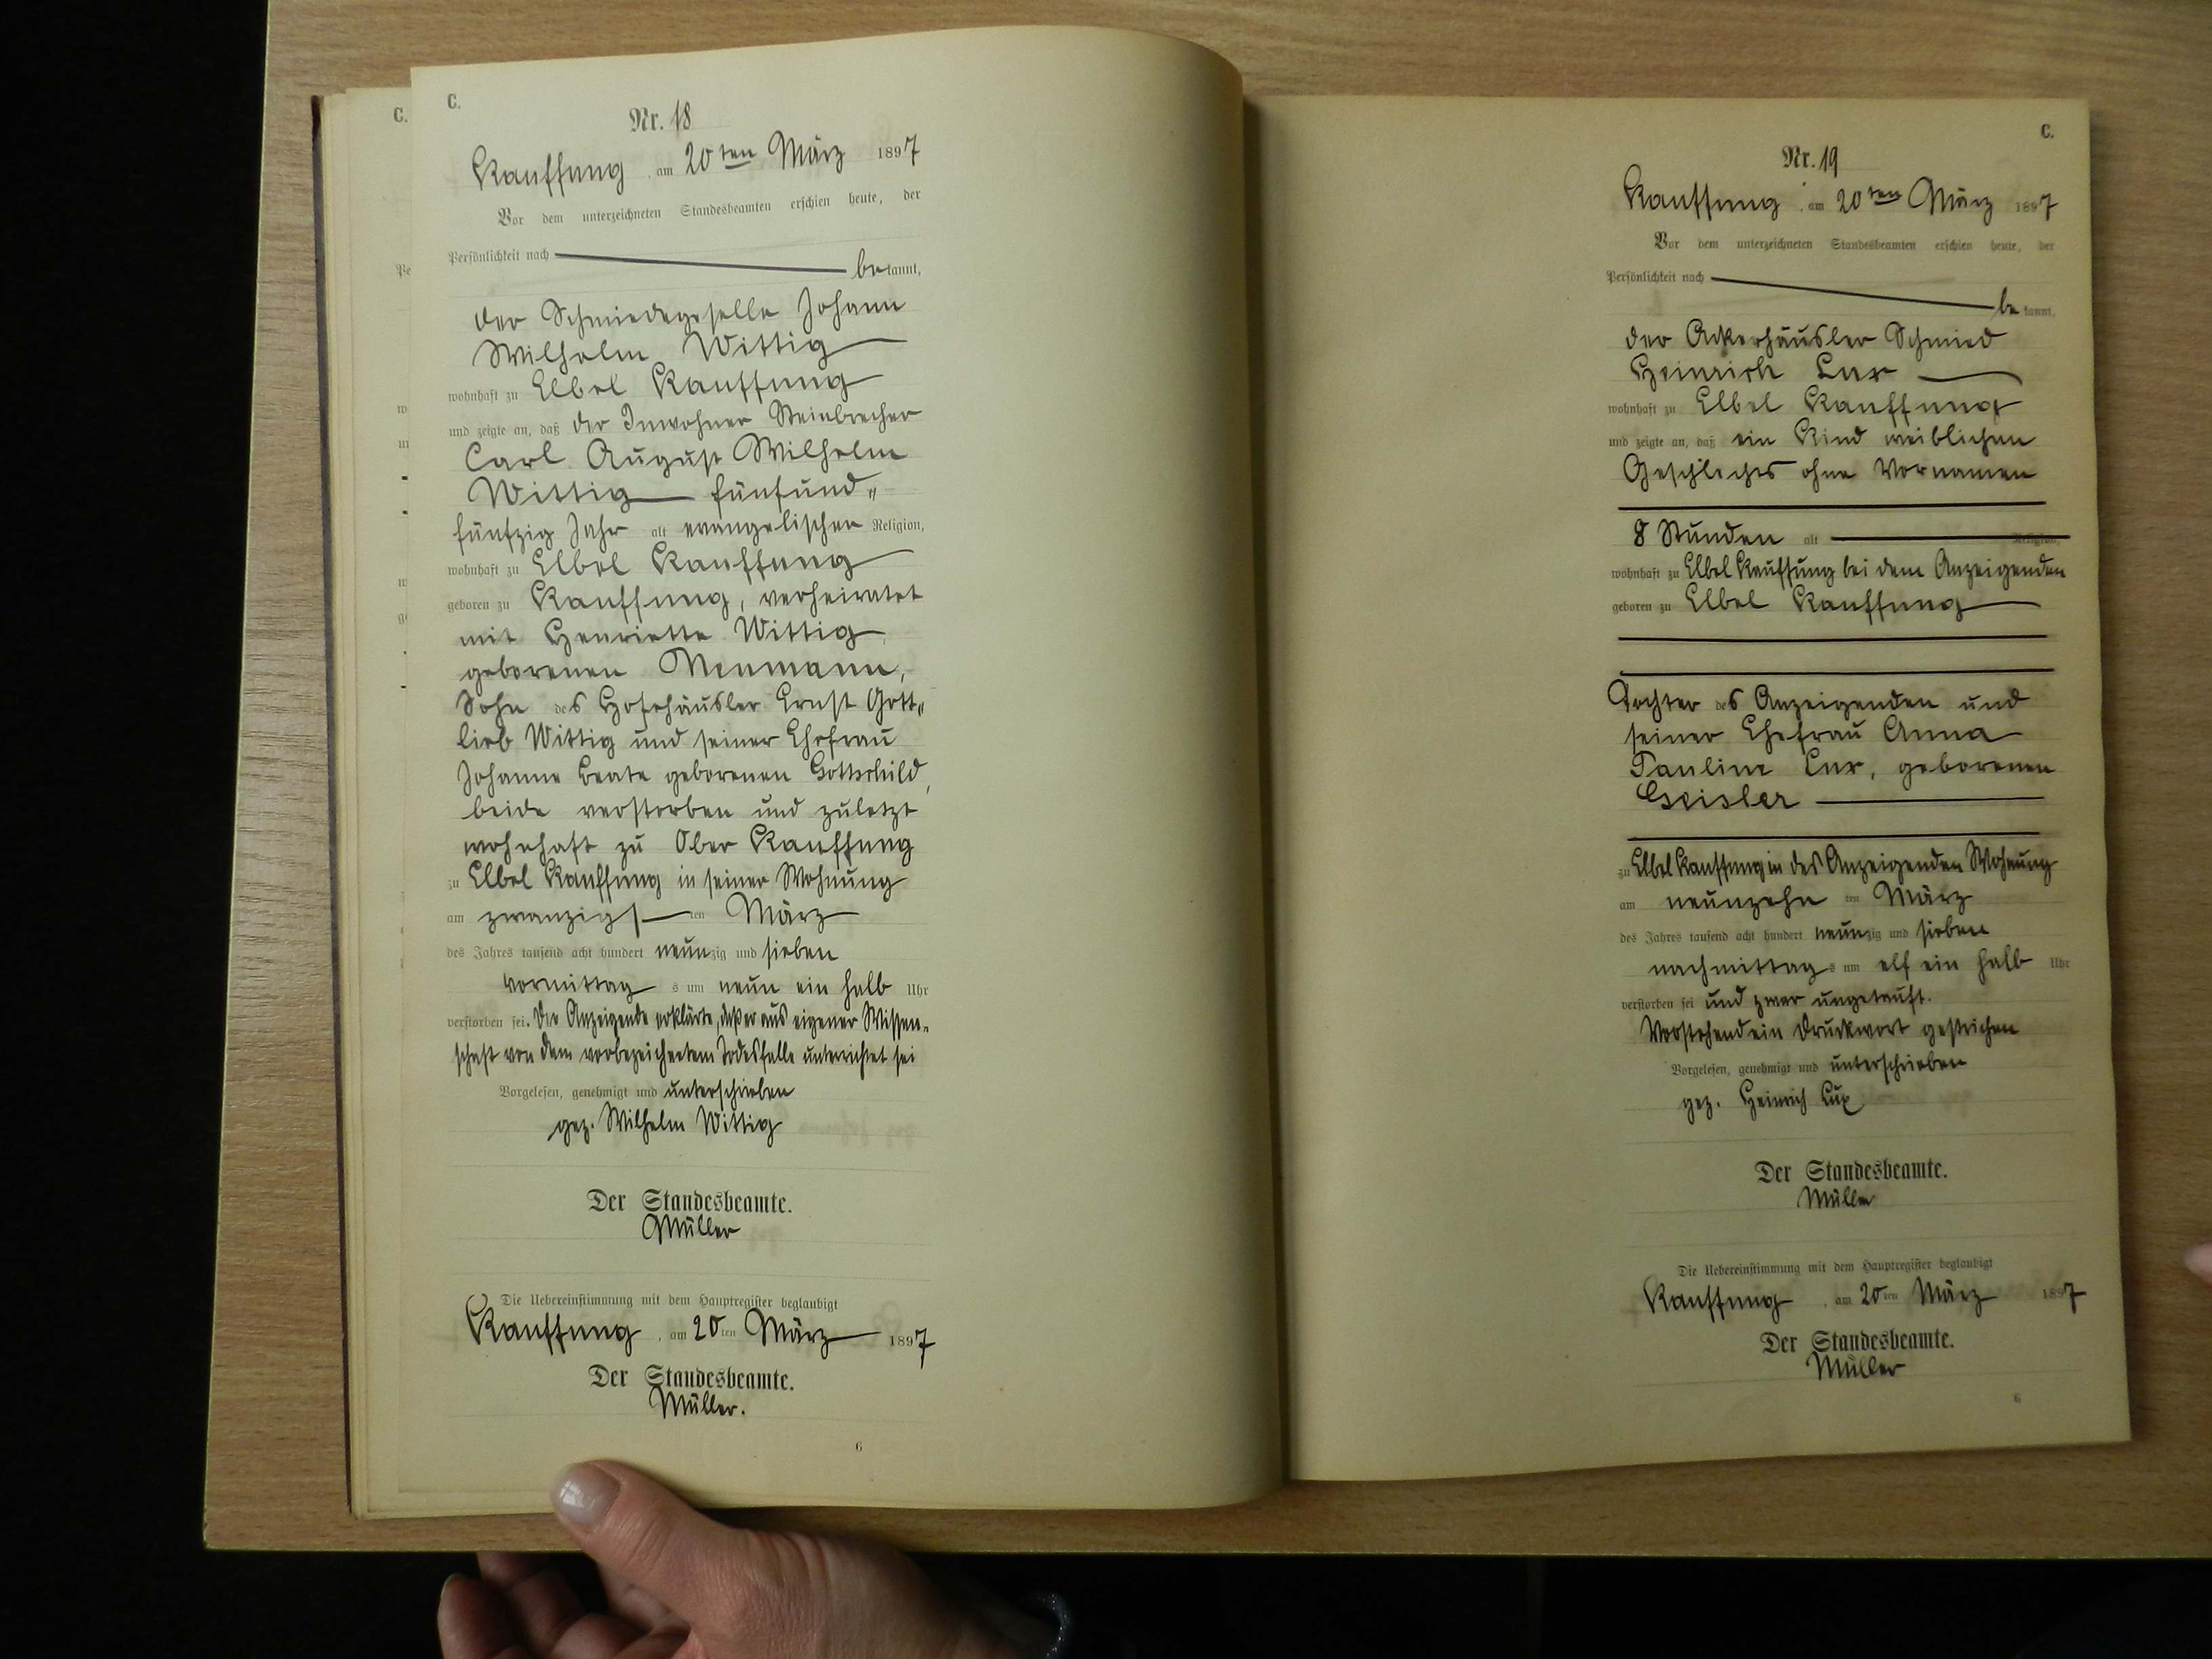 C.
C.
Nr. 18
Kauffung, am 20ten März 1897
Vor dem unterzeichneten Standesbeamten erschien heute, der
Persönlichkeit nach bekannt,
der Schmiedegeselle Johann
Wilhelm Wittig
wohnhaft zu Elbel Kauffung
und zeigte an, daß der Inwohner Steinbrecher
Carl August Wilhelm
Wittig fünfund„
fünfzig Jahr alt evangelischer Religion,
wohnhaft zu Elbel Kauffung
geboren zu Kauffung, verheiratet
mit Henriette Wittig,
geborenen Neumann,
Sohn des Hofehäusler Ernst Gott„
lieb Wittig und seiner Ehefrau
Johanne Beate geborenen Gottschild,
beide verstorben und zuletzt
wohnhaft zu Ober Kauffung
zu Elbel Kauffung in seiner Wohnung
am zwanzigsten März
des Jahres tausend acht hundert neunzig und sieben
vormittags um neun ein halb Uhr
verstorben sei. Der Anzeigende erklärte, daß er aus eigener Wissen-
schaft von dem vorbezeichneten Todesfalle unterrichtet sei
Vorgelesen, genehmigt und unterschrieben
gez. Wilhelm Wittig
Der Standesbeamte.
Müller
Die Uebereinstimmung mit dem Hauptregister beglaubigt
Kauffung, am 20ten März 1897
Der Standesbeamte.
Müller.
6
C.
Nr. 19
Kauffung, am 20ten März 1897
Vor dem unterzeichneten Standesbeamten erschien heute, der
Persönlichkeit nach bekannt,
der Ackerhäusler Schmied
Heinrich Lux
wohnhaft zu Elbel Kauffung
und zeigte an, daß ein Kind weiblichen
Geschlechts ohne Vornamen
8 Stunden alt Religion,
wohnhaft zu Elbel Kauffung bei dem Anzeigenden
geboren zu Elbel Kauffung
Tochter des Anzeigenden und
seiner Ehefrau Anna
Pauline Lux, geborenen
Geisler
zu Elbel Kauffung in des Anzeigenden Wohnung
am neunzehnten März
des Jahres tausend acht hundert neunzig und sieben
nachmittags um elf ein halb Uhr
verstorben sei und zwar ungetauft.
Vorstehend ein Druckwort gestrichen
Vorgelesen, genehmigt und unterschrieben
gez. Heinrich Lux
Der Standesbeamte.
Müller
Die Uebereinstimmung mit dem Hauptregister beglaubigt
Kauffung, am 20ten März 1897
Der Standesbeamte.
Müller
6